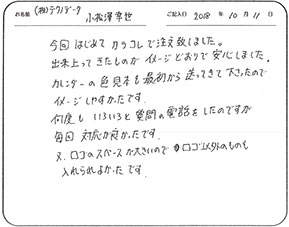 お名前 (株)テクノデータ 小松澤孝世 ご記入日 2018年10月11日
今回はじめてカラコレで注文致しました。
出来上ってきたものがイメージどおりで安心しました。
カレンダーの色見本も最初から送ってきて下さったので
イメージしやすかったです。
何度もいろいろと質問の電話をしたのですが
毎回対応が良かったです。
又、ロゴのスペースが大きいのでロゴ以外のものも
入れられよかったです。